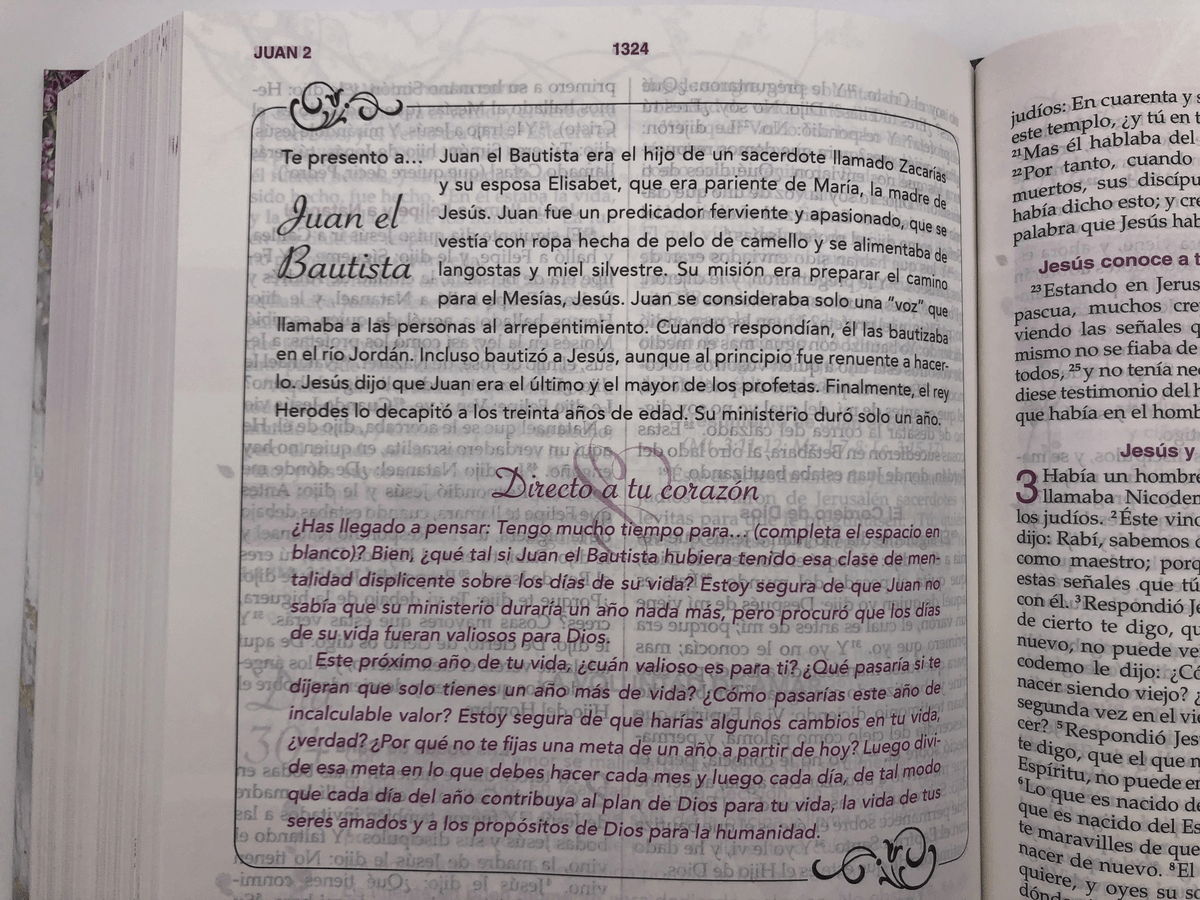 JUAN 2
1324
Te presento a...
Juan el
Bautista
Juan el Bautista era el hijo de un sacerdote llamado Zacarías
y su esposa Elisabet, que era pariente de María, la madre de
Jesús. Juan fue un predicador ferviente y apasionado, que se
vestía con ropa hecha de pelo de camello y se alimentaba de
langostas y miel silvestre. Su misión era preparar el camino
para el Mesías, Jesús. Juan se consideraba solo una “voz” que
llamaba a las personas al arrepentimiento. Cuando respondían, él las bautizaba
en el río Jordán. Incluso bautizó a Jesús, aunque al principio fue renuente a hacer-
lo. Jesús dijo que Juan era el último y el mayor de los profetas. Finalmente, el rey
Herodes lo decapitó a los treinta años de edad. Su ministerio duró solo un año.
Directo a tu corazón
¿Has llegado a pensar: Tengo mucho tiempo para... (completa el espacio en
blanco)? Bien, ¿qué tal si Juan el Bautista hubiera tenido esa clase de men-
talidad displicente sobre los días de su vida? Estoy segura de que Juan no
sabía que su ministerio duraría un año nada más, pero procuró que los días
de su vida fueran valiosos para Dios.
Este próximo año de tu vida, ¿cuán valioso es para ti? ¿Qué pasaría si te
dijeran que solo tienes un año más de vida? ¿Cómo pasarías este año de
incalculable valor? Estoy segura de que harías algunos cambios en tu vida,
¿verdad? ¿Por qué no te fijas una meta de un año a partir de hoy? Luego divi-
de esa meta en lo que debes hacer cada mes y luego cada día, de tal modo
que cada día del año contribuya al plan de Dios para tu vida, la vida de tus
seres amados y a los propósitos de Dios para la humanidad.
judíos: En cuarenta y
este templo, ¿y tú en
²¹Mas él hablaba del
²²Por tanto, cuando
muertos, sus
había dicho esto; y
palabra que Jesús
Jesús conoce a
²³Estando en
pascua, muchos
viendo las señales
mismo no se fiaba de
todos, ²⁵y no tenía
diese testimonio del
que había en el
Jesús y
3 Había un hombre
llamaba
los judíos. ²Éste
dijo: Rabí, sabemos
como maestro;
estas señales que tú
con él. ³Respondió
de cierto te digo,
nuevo, no puede
codemo le dijo:
nacer siendo viejo?
segunda vez en el
cer? ⁵Respondió
te digo, que el que
Espíritu, no puede
⁶Lo que es nacido
que es nacido del
te maravilles de
nacer de nuevo. ⁸El
quiere, y oyes su